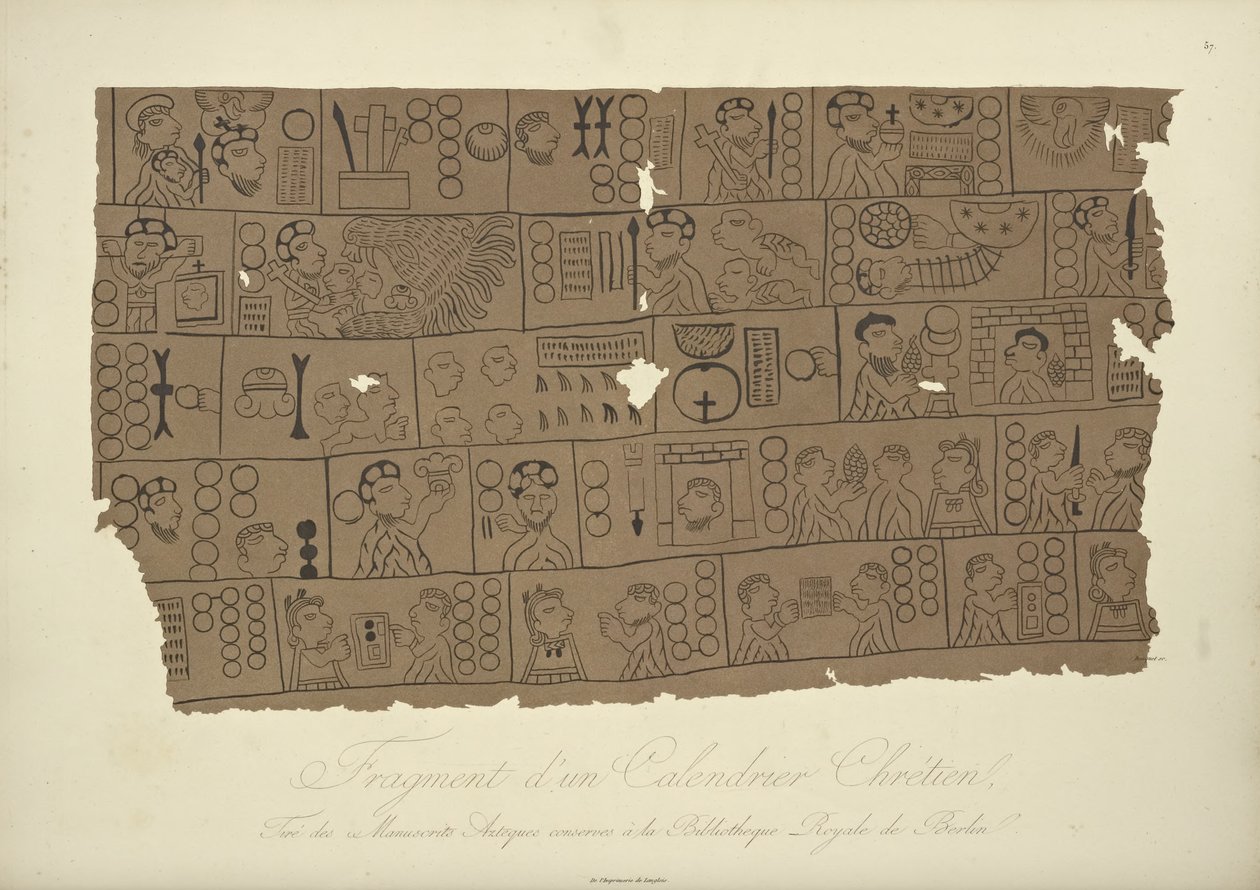 57.
Bouquet sc.
Fragment d'un Calendrier Chrétien,
Tiré des Manuscrits Aztèques conservés à la Bibliothèque Royale de Berlin.
De l'Imprimerie de Langlois.